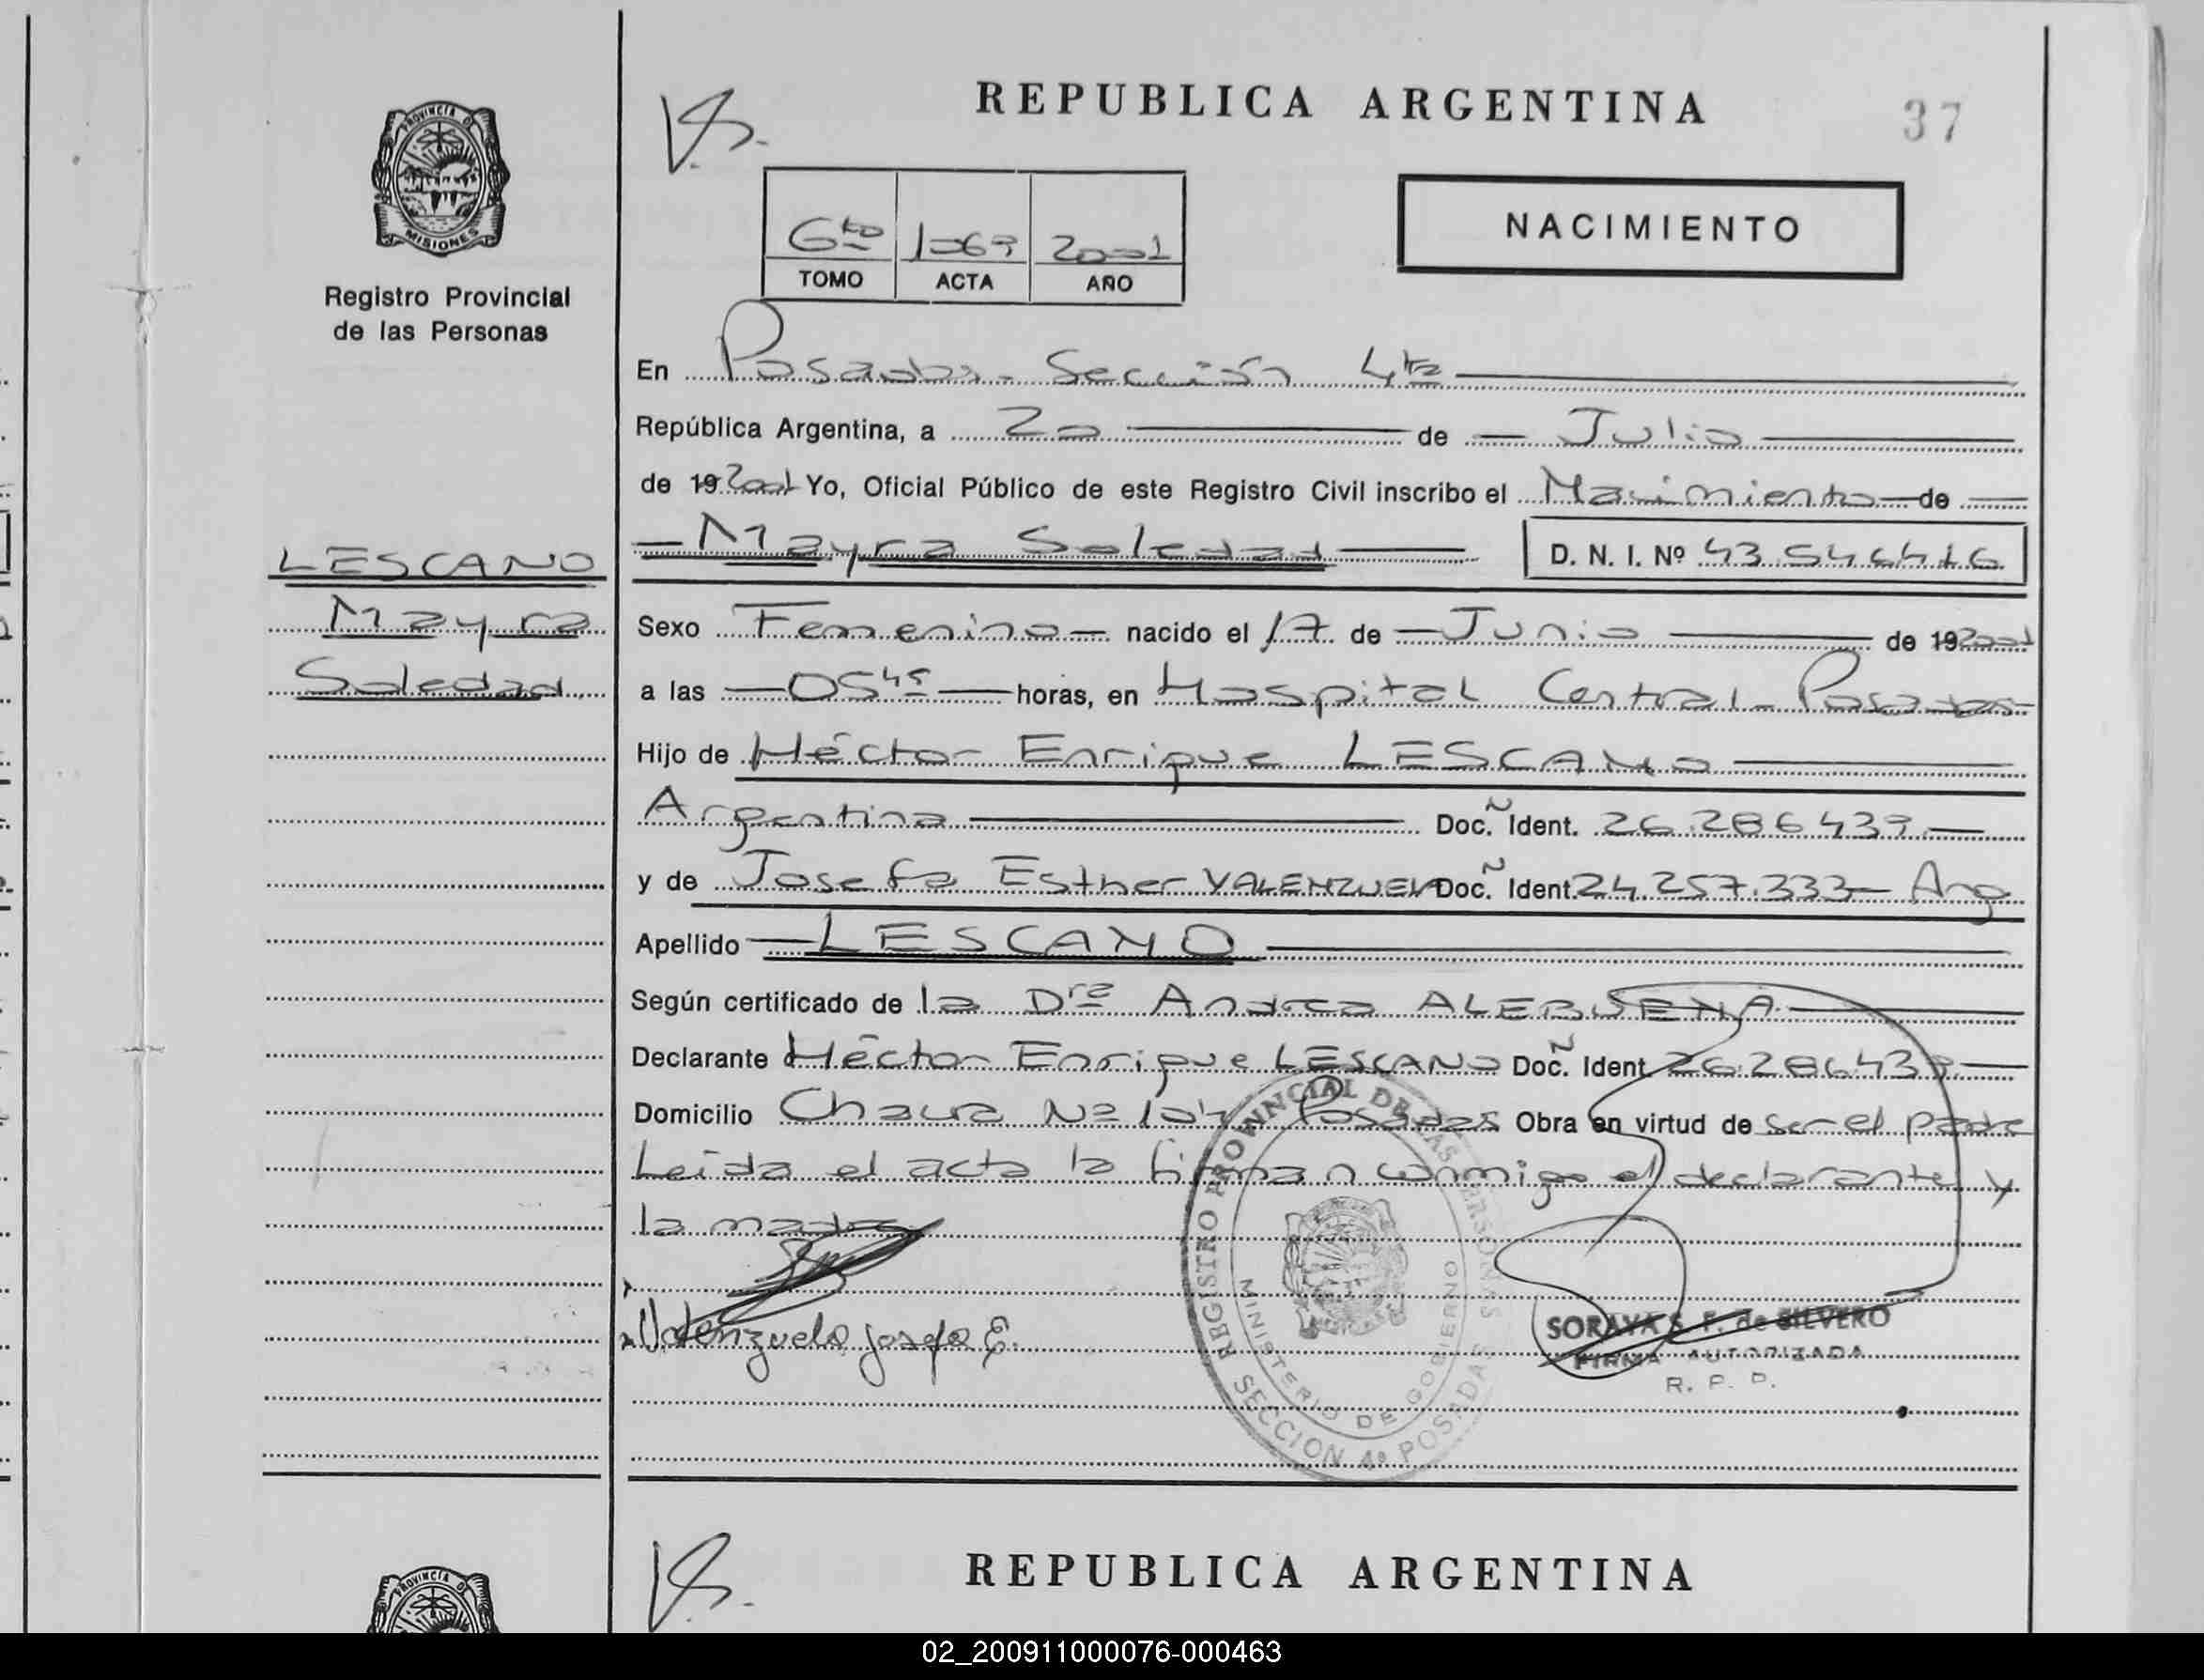 REPUBLICA ARGENTINA
37
PROVINCIA DE
MISIONES
Registro Provincial
de las Personas
NACIMIENTO
6to 1069 2001
TOMO ACTA AÑO
En Posadas - Sección 4ta
República Argentina, a 20 de Julio
de 19 2001 Yo, Oficial Público de este Registro Civil inscribo el Nacimiento de
LESCANO
Mayra
Soledad
Mayra Soledad D. N. I. Nº 43.546.416
Sexo Femenino nacido el 17 de Junio de 19 2001
a las 05 45 horas, en Hospital Central - Posadas
Hijo de Héctor Enrique LESCANO
Argentina Doc. Ident. 26.286.439
y de Josefa Esther VALENZUELA Doc. Ident. 24.257.333 - Arg
Apellido LESCANO
Según certificado de la Dra Andrea
Declarante Héctor Enrique LESCANO Doc. Ident 26.286.439
Domicilio Nº Posadas Obra en virtud de ser el padre
Leída el acta la firman conmigo el declarante y
la madre
Valenzuela Josefa E.
REGISTRO PROVINCIAL DE LAS PERSONAS
MINISTERIO DE GOBIERNO
SECCION 4º POSADAS
SORAYA S. F. de SILVERO
FIRMA AUTORIZADA
R. P. P.
REPUBLICA ARGENTINA
PROVINCIA DE
02_200911000076-000463